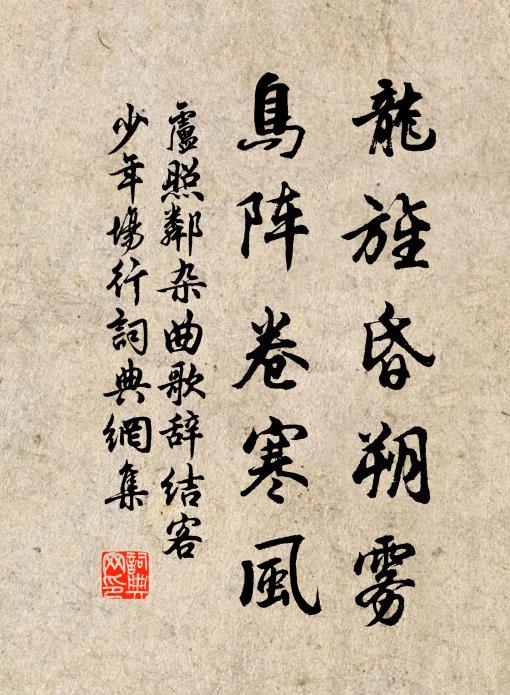 龍旌昏朔雾
鳥阵卷寒風
盧照鄰杂曲歌辞结客
少年場行詞典網集
詞典網印